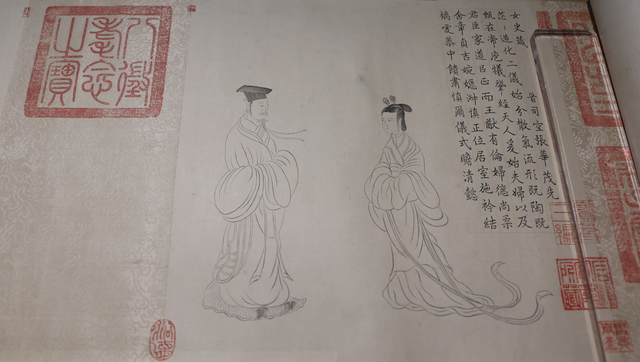 女史箴 晉司空張華茂先
茫〻造化二儀始分散氣流形既陶既
甄在帝庖犧肇經天人爰始夫婦以及
君臣家道㠯正而王猷有倫婦德尚柔
含章貞吉婉嫕淑慎正位居室施衿結
褵虔恭中饋肅慎爾儀式瞻清懿
八徵耄念之寶